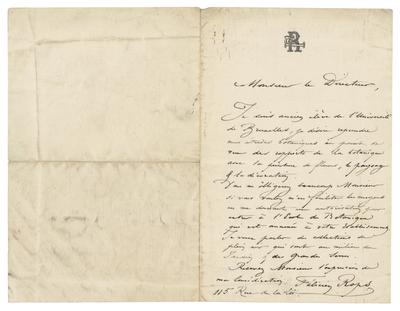 Monsieur le Directeur,
Je suis ancien élève de l'Université
de Bruxelles, je désire reprendre
mes études botaniques au point de
vue des rapports de la botanique
avec la peinture de fleurs, le paysage
& la décoration.
beaucoup Monsieur
si vous
en me une autorisation pour
entrer à l'École de Botanique
qui est annexée à votre
Je veux parler de
plein air qui sont au milieu du
Jardin & des Grandes Serres.
Recevez Monsieur l'expression de
ma Considération. Félicien Rops
115 Rue de la Loi.